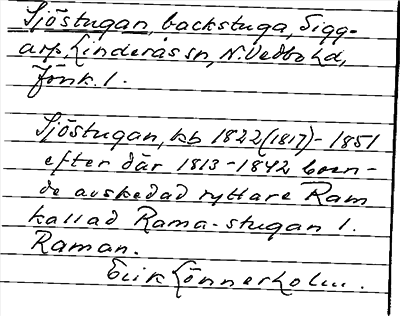 Sjöstugan, backstuga, Sigg-
arp, Linderås sn, N. Vedbo hd,
Jönk. l.
Sjöstugan, kb 1822 (1817) - 1851
efter där 1813 - 1842 boen-
de avskedad ryttare Ram
kallad Rama-stugan l.
Raman.
Erik Lönnerholm.